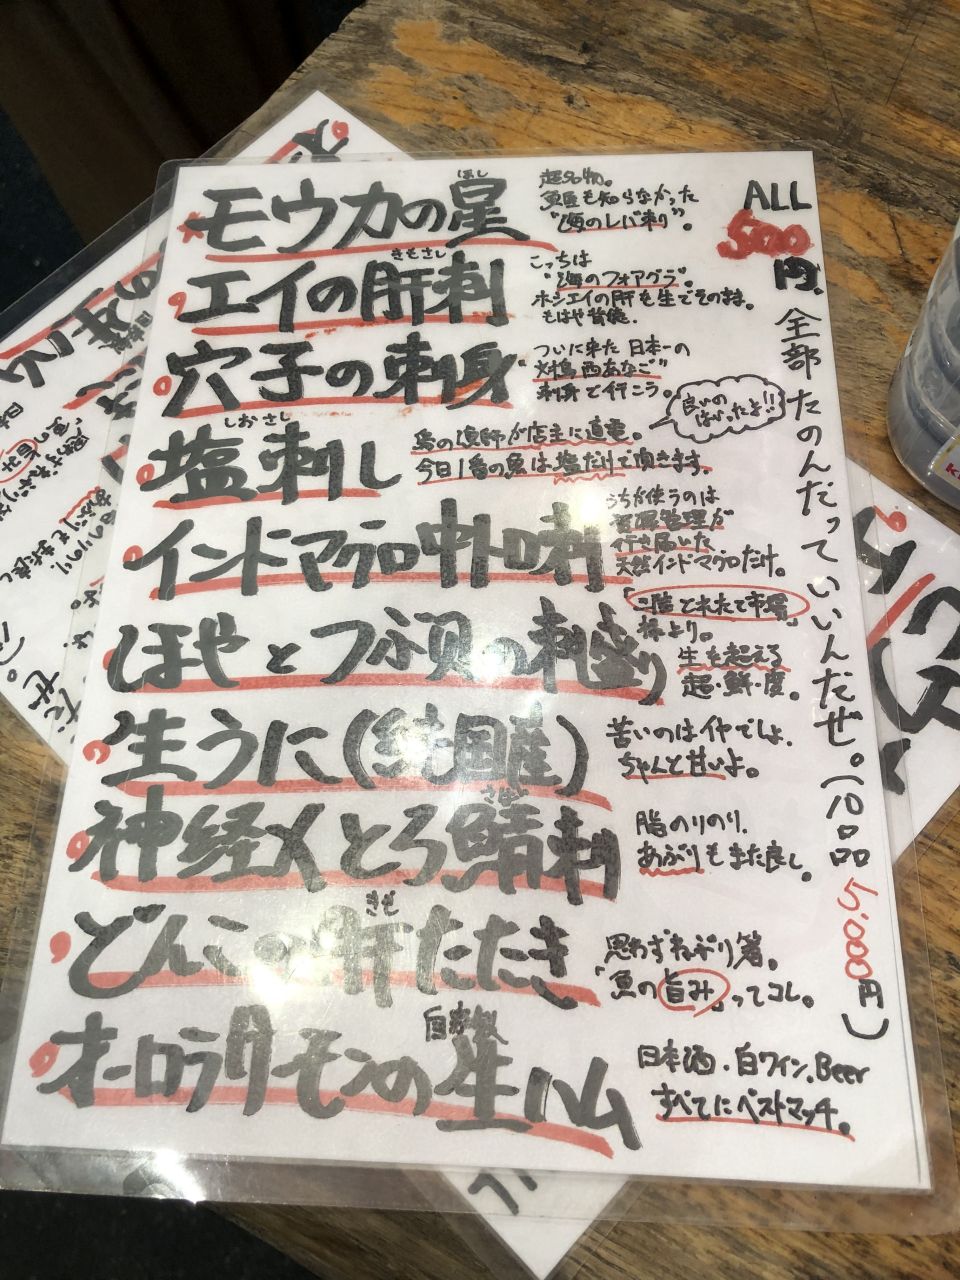 モウカの星
ほし
超名物。
魚屋も知らなかった
"海のレバ刺り"。
エイの肝刺
きもさし
こっちは
"海のフォアグラ"。
ホシエイの肝も生でそのまま。
もはや官能。
穴子の刺身
ついに来た 日本一の
"対馬西あなご"
刺身で行こう。
塩刺し
しおさし
島の漁師が店主に直電。
今日1番の魚は塩だけで頂きます。
良いの
はいったよ!!
インドマグロ中トロ刺
うちが使うのは
管理が
行き届いた
天然インドマグロだけ。
ほやとつぶ貝の刺盛り
「二階とれたて市場」
様より。
生を超える
超・鮮・度。
生うに(純国産)
苦いのはイヤでしょ。
ちゃんと甘いよ。
神経〆とろ鯖刺
さばさし
脂のりのり。
あぶりもまた良し。
どんこの肝たたき
きも
思わずねぶり箸。
「魚の旨み」ってコレ。
オーロラサーモンの自家製生ハム
日本酒・白ワイン、Beer
すべてにベストマッチ。
ALL
500
円。全部たのんだっていいんだぜ。(10品 5,000円)